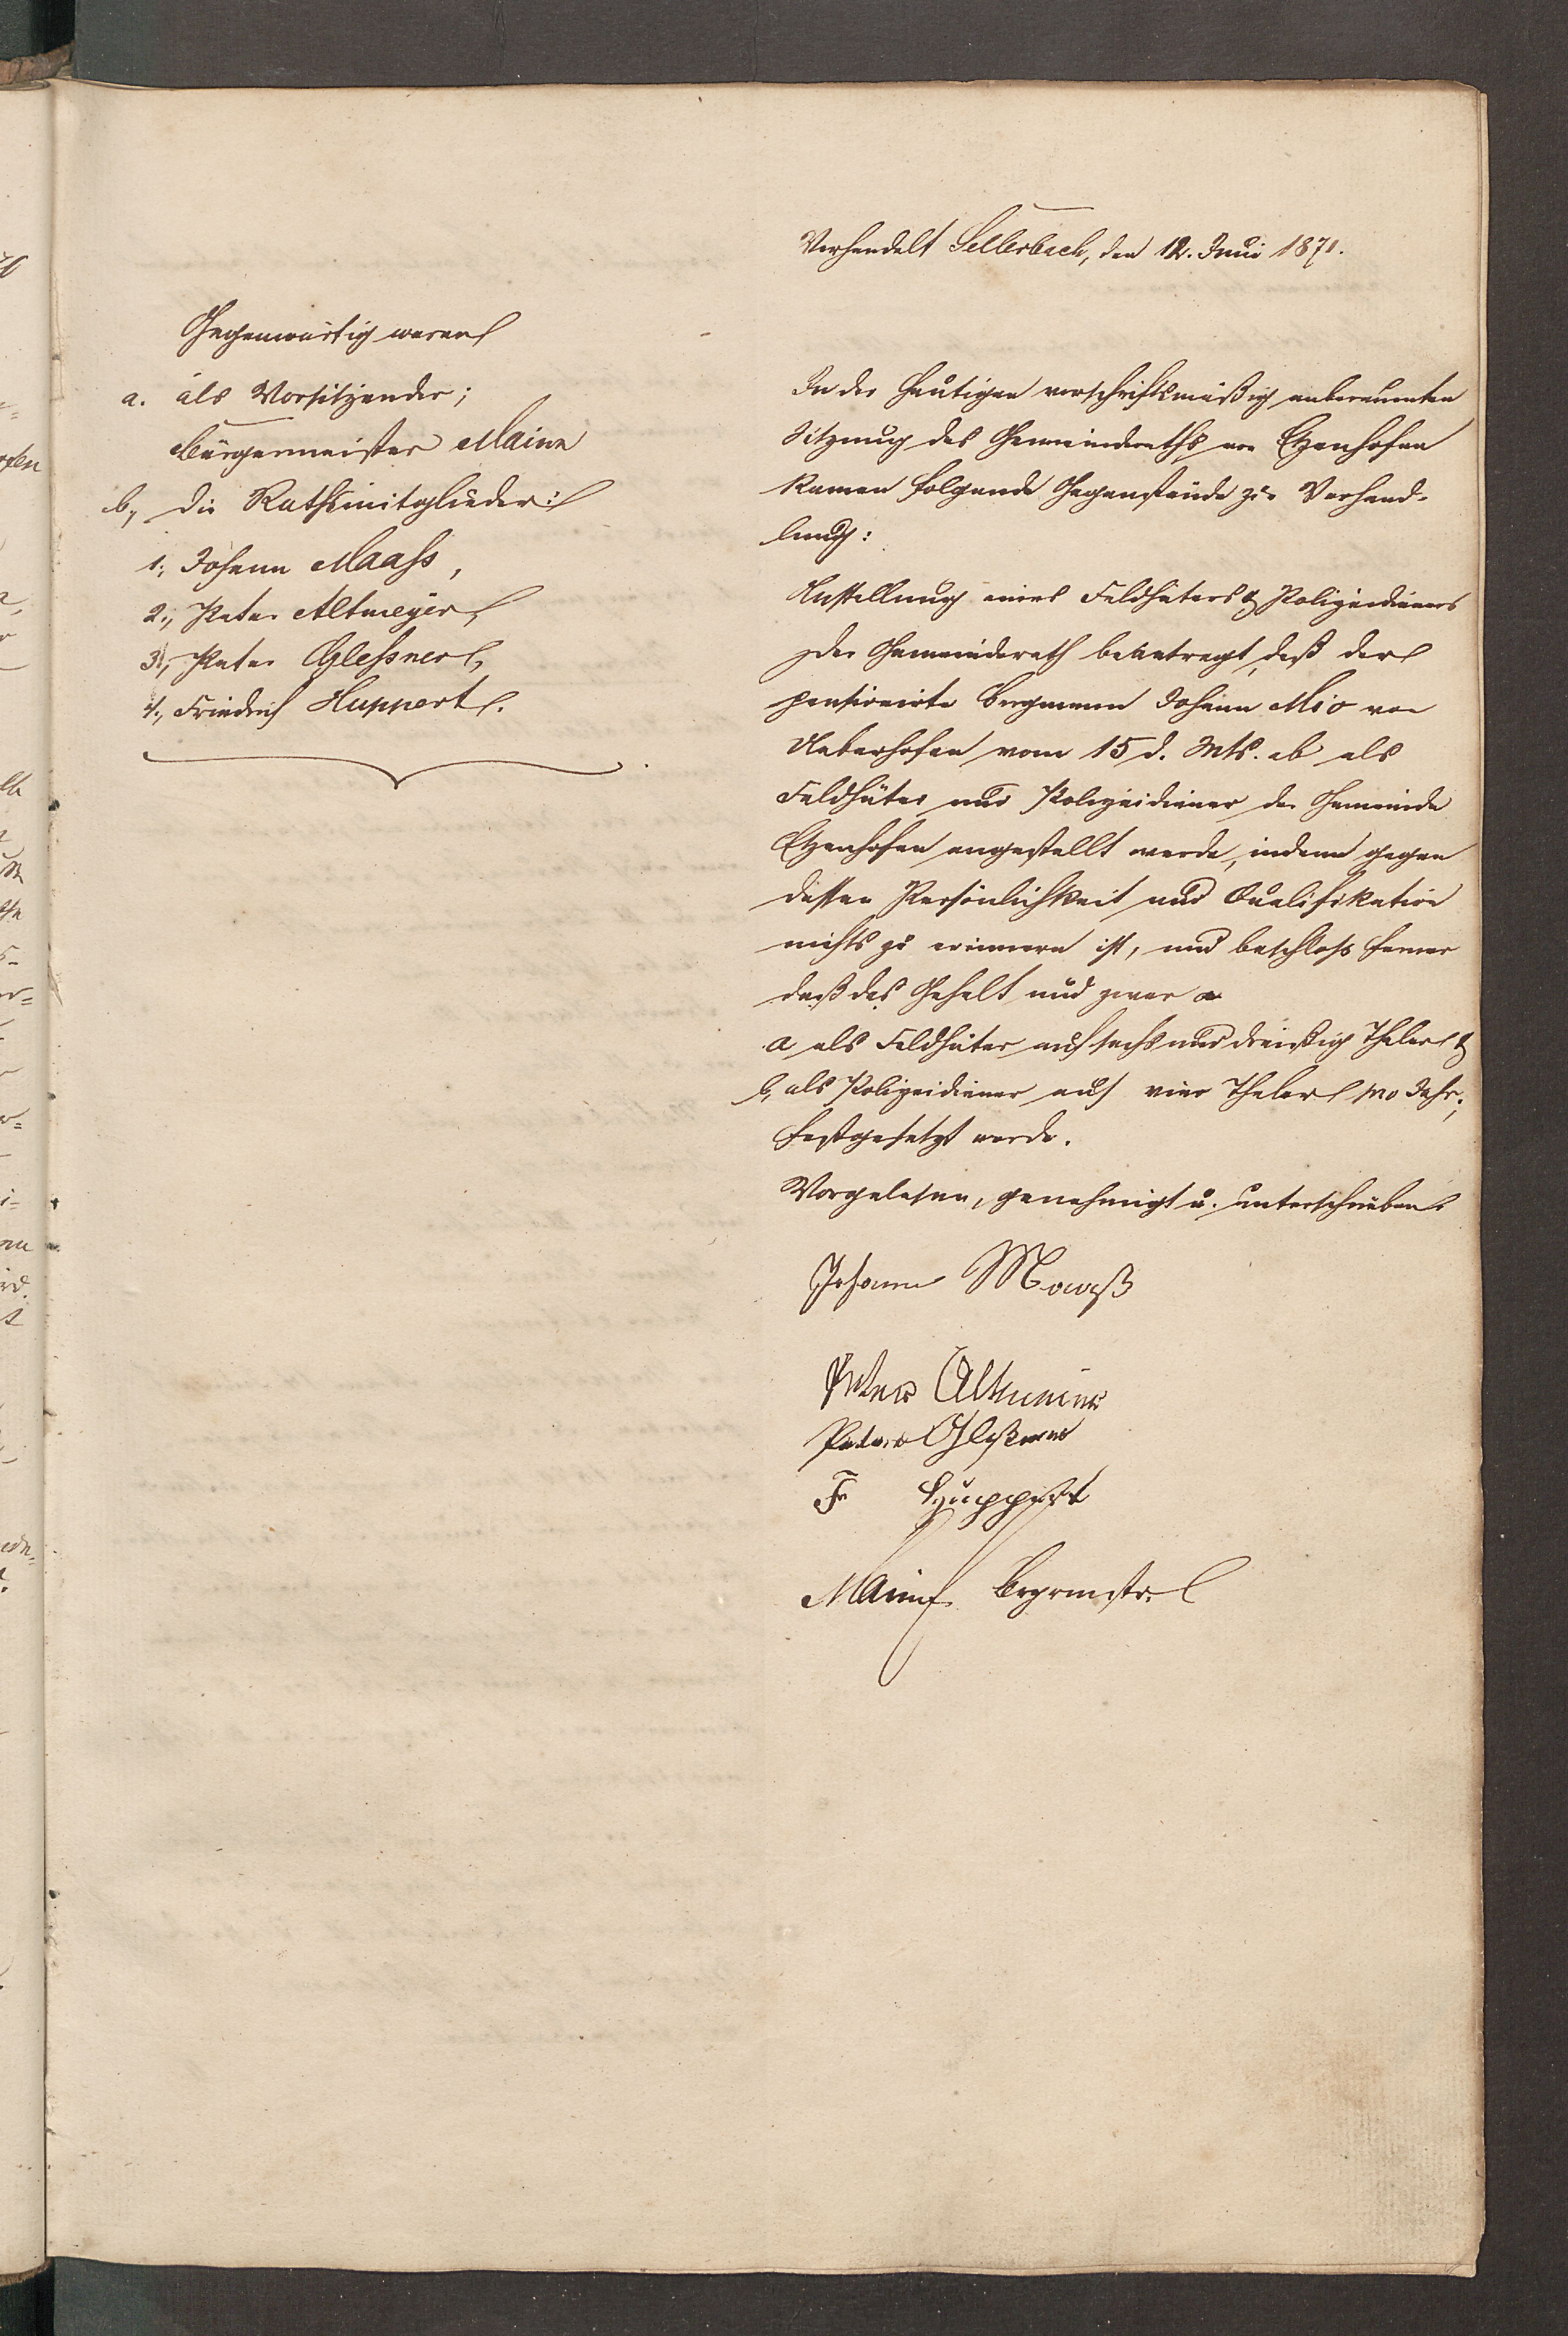 Verhandelt Sellerbach, den 12. Juni 1871.
Gegenwärtig waren
a. als Vorsitzender;
Bürgermeister Mainn
b, die Rathsmitglieder:
1, Johann Maaß,
2, Peter Altmeyer,
3, Peter Gleßner,
4, Friedrich Huppert.
In der heutigen vorschriftsmäßig anberaumten
Sitzung des Gemeinderaths von Etzenhofen
kamen folgende Gegenstände zur Verhand-
lung:
Anstellung eines Feldhüters & Polizeidieners
Der Gemeinderath beantragt, daß der
pensionirte Bergmann Johann Mio von
Ueberhofen vom 15 d. Mts. ab als
Feldhüter und Polizeidiener der Gemeinde
Etzenhofen angestellt werde, indem gegen
dessen Persönlichkeit und Qualifikation
nichts zu erinnern ist, und beschloß ferner
daß das Gehalt und zwar
a als Feldhüter auf sechs und dreißig Thaler &
b, als Polizeidiener auf vier Thaler pro Jahr,
festgesetzt werde.
Vorgelesen, genehmigt u. unterschrieben.
Johann Maaß
Peter Altmeier
Peter Gleßner
Fr Huppert
Brgrmstr.